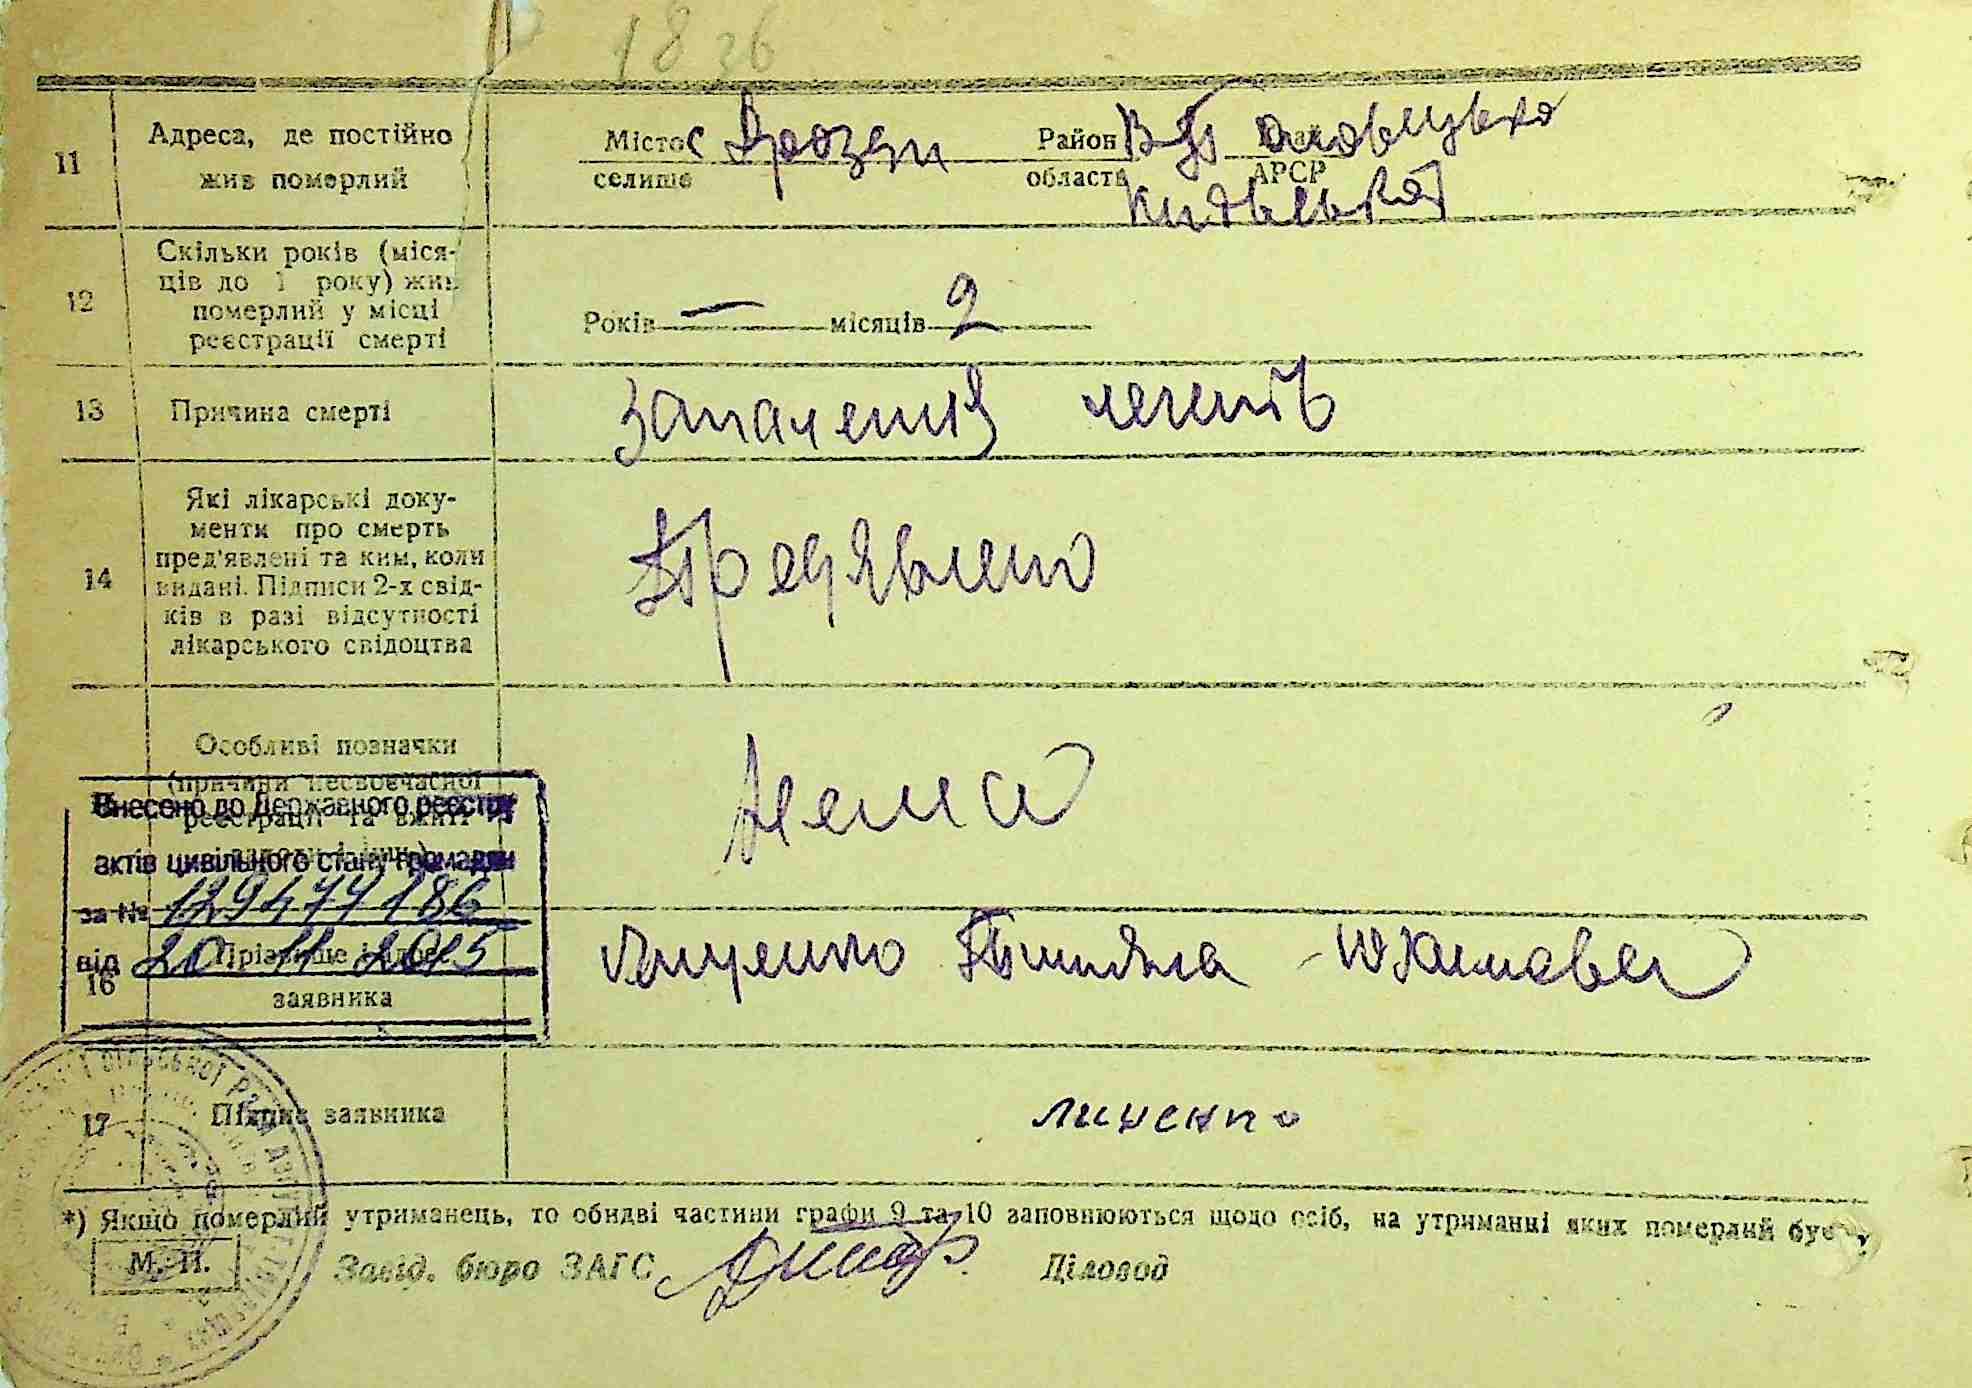 18 36
11 Адреса, де постійно жив померлий
Місто с Дрозди Район В Половецька
селище область АРСР Київська
12 Скільки років (міся-
ців до 1 року) жив
померлий у місці
реєстрації смерті
Років — місяців 2
13 Причина смерті Запалення легенів
14 Які лікарські доку-
менти про смерть
пред'явлені та ким, коли
видані. Підписи 2-х свід-
ків в разі відсутності
лікарського свідоцтва
Предявлено
Особливі позначки
(причини несвоєчасної
реєстрації та вжиті
Нема
Внесено до Державного реєстру
актів цивільного стану громадян
за № 129477186
від 20 11 2015
16 Прізвище і адреса
заявника
17 Підпис заявника
*) Якщо померлий утриманець, то обидві частини графи 9 та 10 заповнюються щодо осіб, на утриманні яких померлий був
М. П. Завід. бюро ЗАГС Діловод